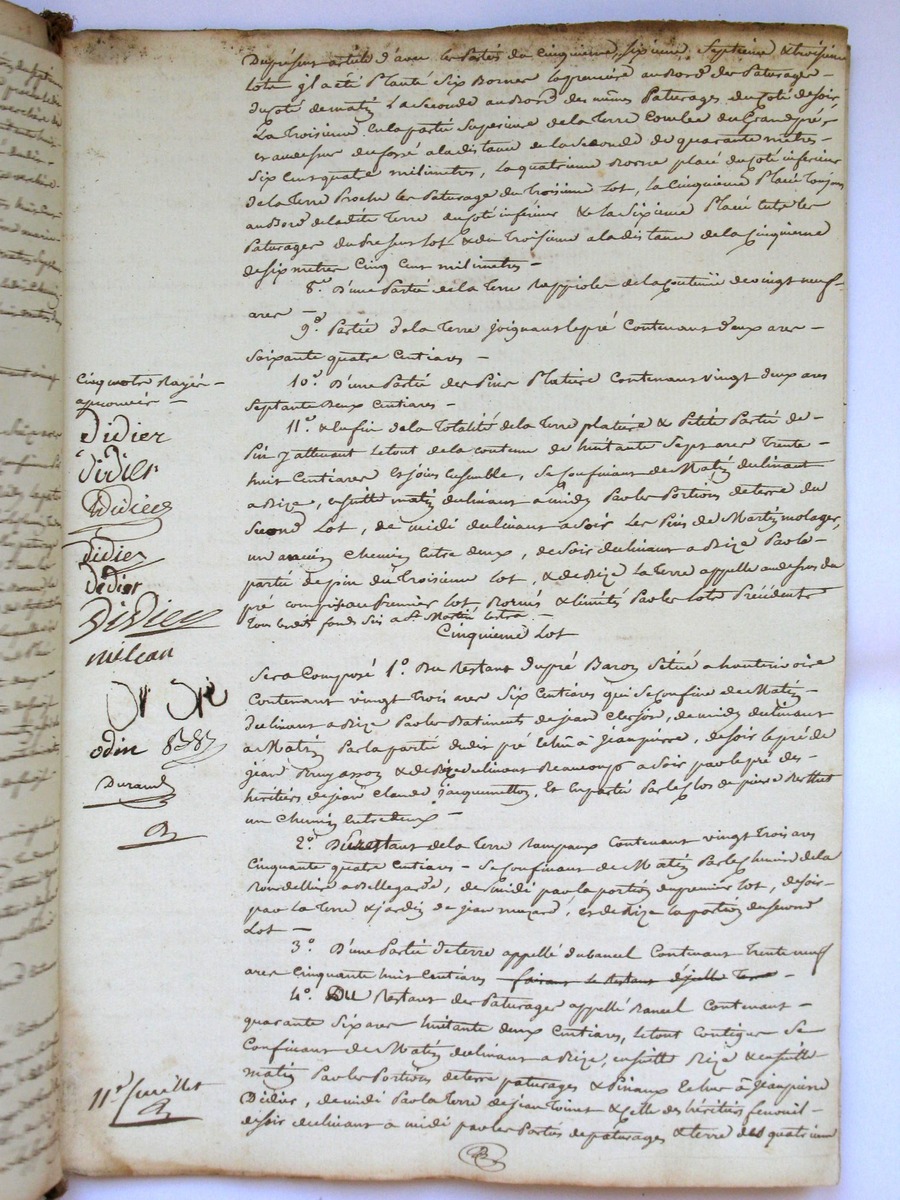 Du présent article d'avec les Parties du Cinquieme, sixieme, Septieme & troisieme
lots il a été Planté Six Bornes la premiere au Bord des Paturages
du coté de matin La Seconde au Bord des mêmes Paturages du coté de soir
La Troisieme en la partie Superieure de la Terre Combe du Grand pré
et au dessus du fossé a la distance de la Seconde de quarante metres
Six cent quatre milimetres, la quatrieme Borne placé du coté inferieur
de la Terre Proche les Paturage du Troisieme Lot, la Cinquieme Placée Toujours
au Bord de ladite Terre du coté inferieur & la Sixieme Placé entre les
Paturages du Presens Lot & du Troisieme a la distance de la Cinquieme
de six metres Cinq cent milimetres –
8.° D'une Partie de la Terre de la Contenüe de vingt neuf
ares –
9.° Partie de la Terre joignant le pré Contenant deux ares –
Soixante quatre Centiares –
10.° D'une Partie des Pins Platiere Contenant vingt deux ares
Septante Deux Centiares –
11.° & Enfin de la Totalité de la Terre platiere & Petite Partie de
Pin y attenant le tout de la contenue de huitante Sept ares Trente
huit Centiares Et joint Ensemble, Se Confinant de Matin declinant
a Bize, ensuitte matin declinant a midi Par les Portions de terre du
Second Lot, de midi declinant a Soir Les Pins de Martin molager,
un ancien Chemin Entre deux, de Soir declinant a Bize Par la
partie de pin du Troisieme Lot, & de Bize La Terre appellé au dessus du
pré compris au Premier Lot, Bornés & limités Par les lots Précédents
Tous lesdits fonds Sis a St Martin Lestra
Cinquieme Lot
Sera Composé 1.° Du Restant du pré Baron Situé a hauterivoire
Contenant vingt Trois ares Six Centiares qui Se Confine de Matin
declinant a Bize Par les Batiments de jean Clerjon, de midi declinant
a Matin Par la partie dudit pré à Jean pierre, de soir le pré de
jean & de Bize declinant Beaucoup a Soir par le pré des
héritiers de jean Claude jacquemetton, Et en partie Par le Clos de pierre Berthet
un Chemin Entre deux –
2.° Du restant de la Terre Rampaux Contenant vingt Trois ares
Cinquante quatre Centiares – Se Confinant de Matin Par le Chemin de la
Rondelliere a Bellegarde, de midi par la portion du premier Lot, de soir
par La Terre & jardin de jean muzard, et de Bize la portion du second
Lot –
3.° D'une Partie de terre appellé Contenant Trente neuf
ares Cinquante huit Centiares faisant Le Restant d'icelle Terre –
4.° Du Restant des Paturages appellé Contenant
quarante Six ares huitante deux Centiares, le tout Contigue Se
Confinant de Matin declinant a Bize, ensuitte Bize & ensuitte
matin Par les Portions de terre paturages & Pinaux Echue à Jean pierre
Didier, de midi Par la Terre de jean & Celle des héritiers fenouil
de soir declinant à midi par les Parties de paturages & terre des quatrieme
Cinq mots Rayés
approuvés
Didier
Didier
Didier
Didier
Dedier
Didier
odin
Durand
11.e feuillet